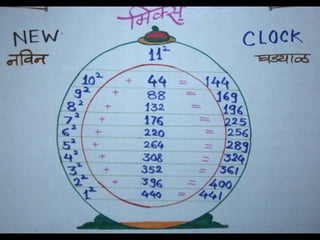 मिक्सु
NEW CLOCK
नविन घड्याळ
11²
10² + 44 = 144
9² + 88 = 169
8² + 132 = 196
7² + 176 = 225
6² + 220 = 256
5² + 264 = 289
4² + 308 = 324
3² + 352 = 361
2² + 396 = 400
1² + 440 = 441